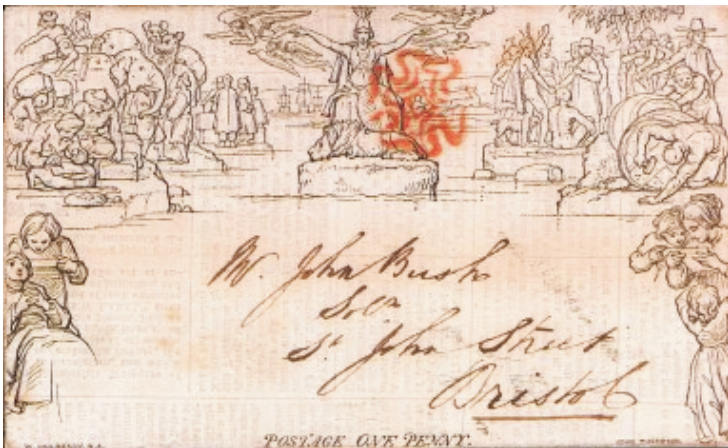 Mr. John Bush
Solr
St John Street
Bristol
POSTAGE ONE PENNY.